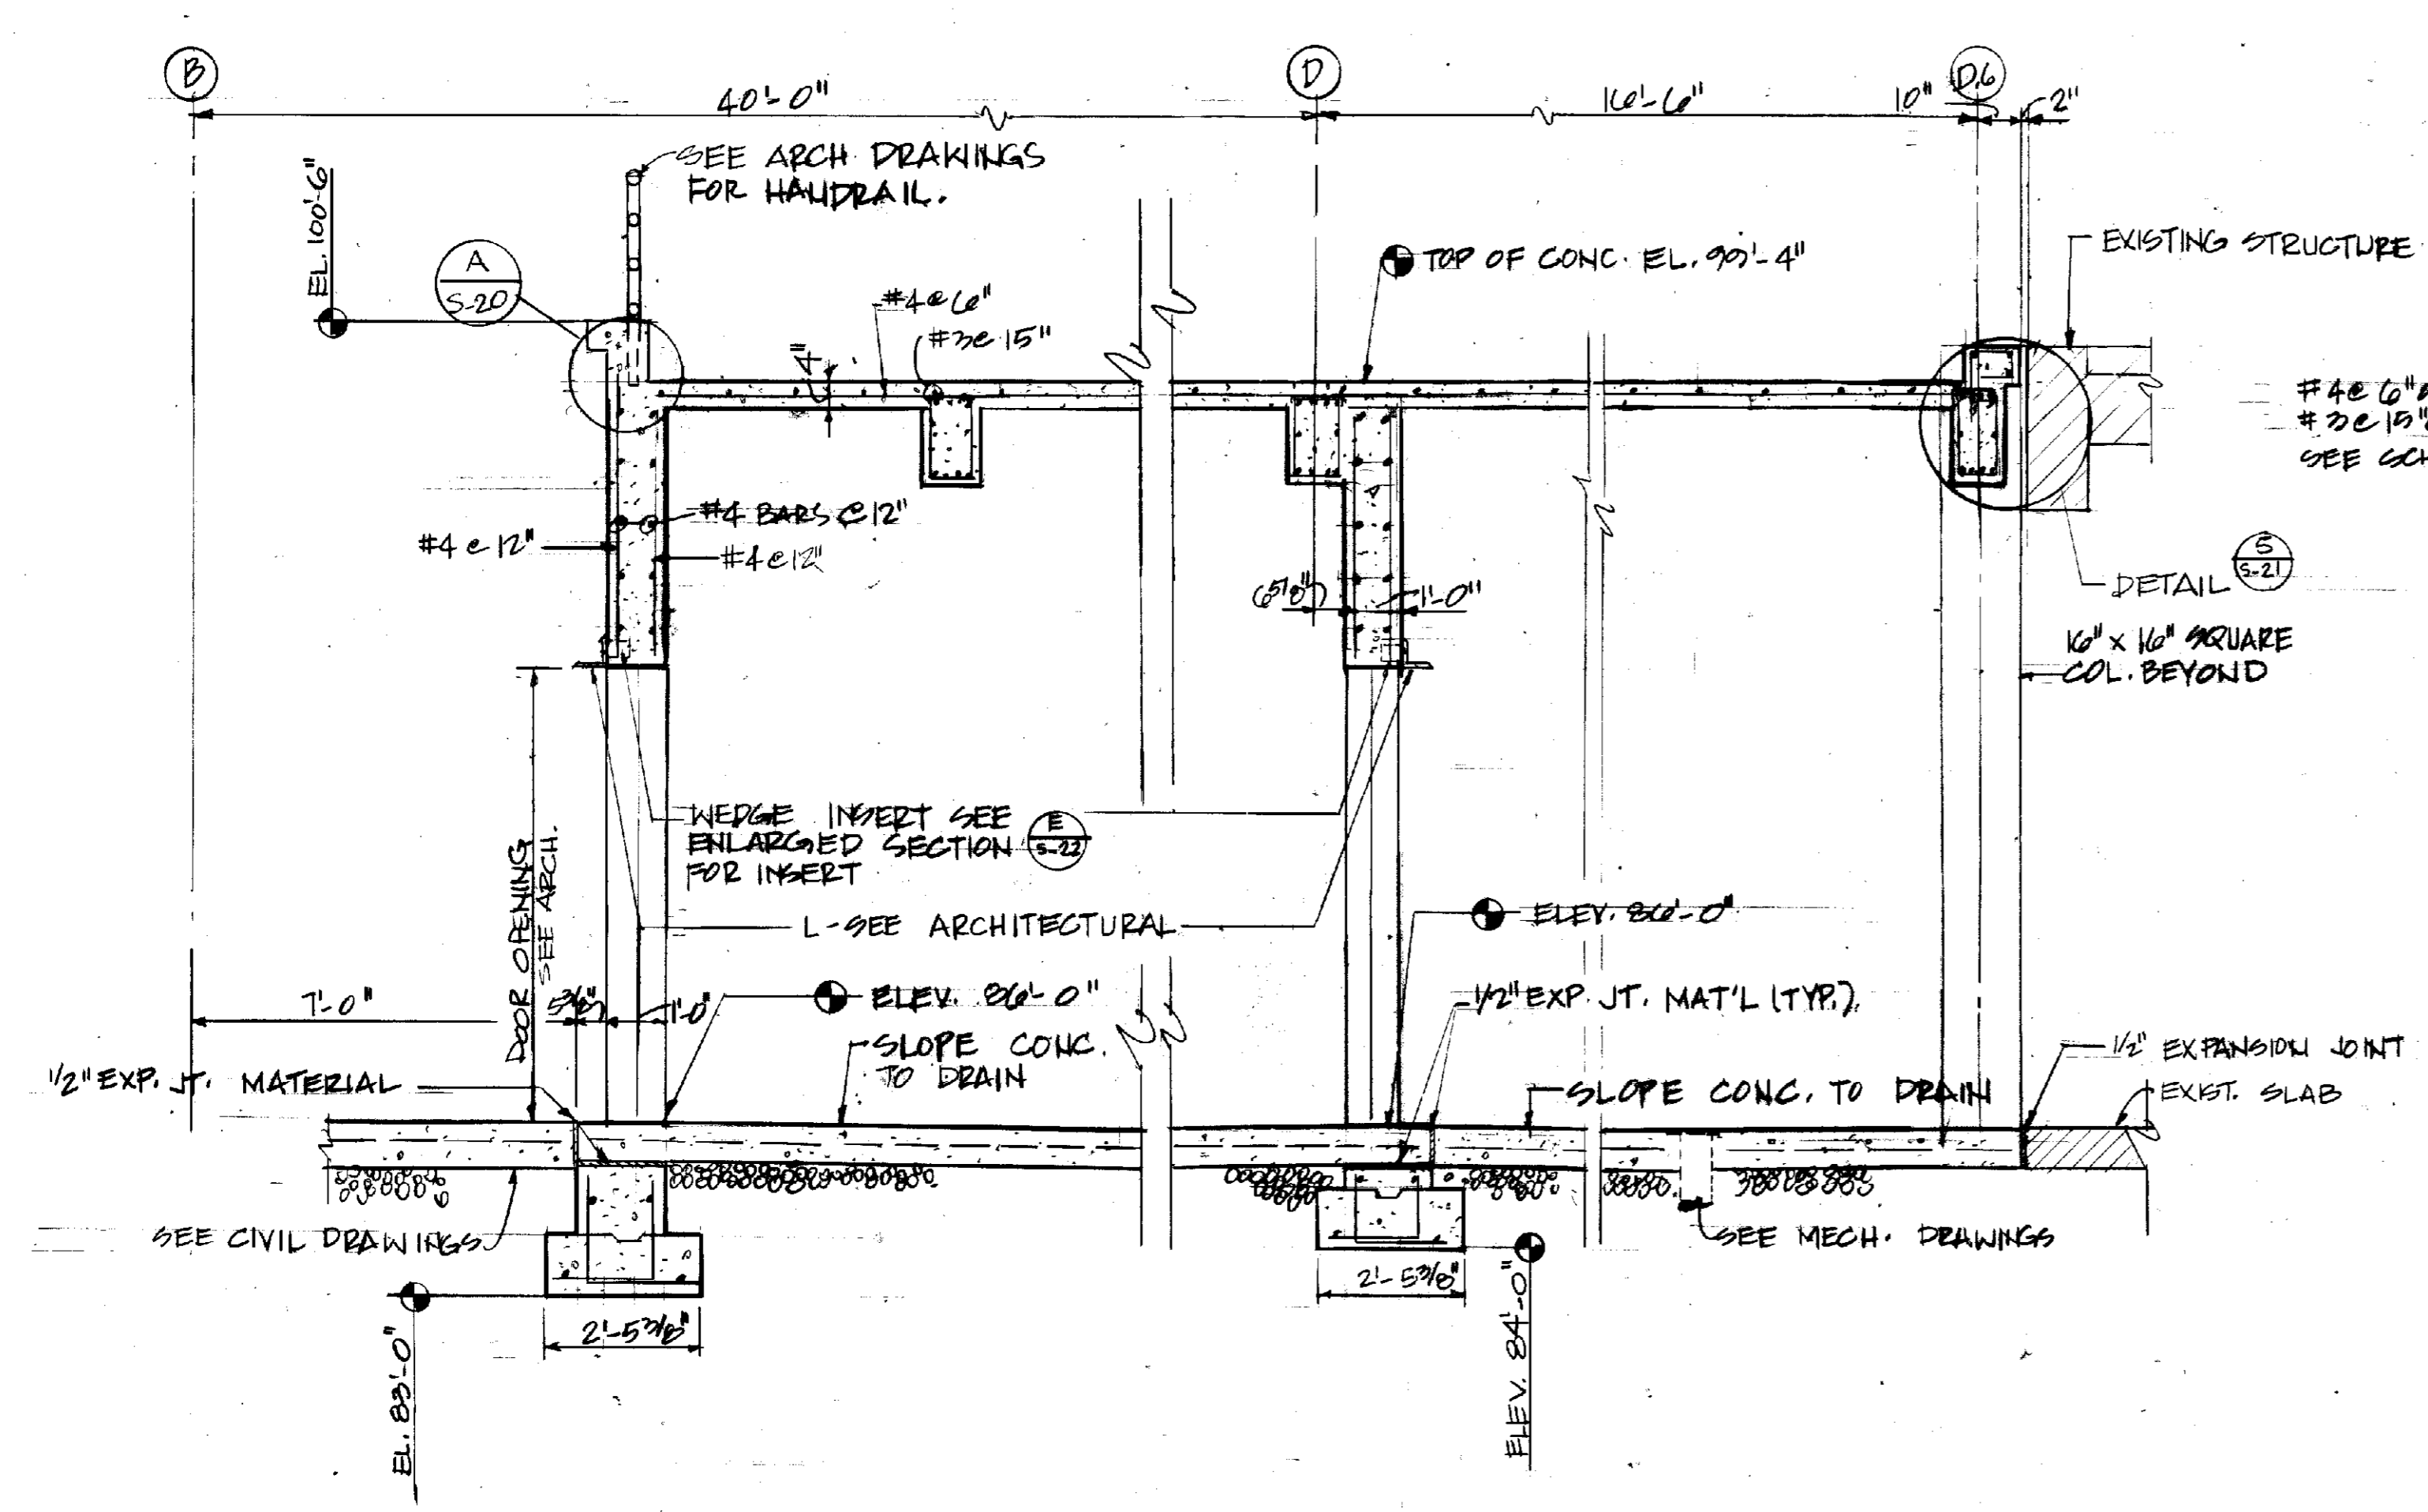 B
D
D.6
40'-0"
16'-6"
10"
2"
SEE ARCH. DRAWINGS
FOR HANDRAIL.
EL. 100'-6"
A
S-20
#4@6"
#3@15"
4"
TOP OF CONC. EL. 99'-4"
EXISTING STRUCTURE
#4@6"
#3@15"
SEE SCH
#4 BARS @12"
#4@12"
#4@12"
6 5/8"
1'-0"
DETAIL
5
S-21
16" x 16" SQUARE
COL. BEYOND
WEDGE INSERT SEE
ENLARGED SECTION
FOR INSERT
E
S-22
DOOR OPENING
SEE ARCH.
L-SEE ARCHITECTURAL
ELEV. 86'-0"
7'-0"
5 3/8"
1'-0"
ELEV. 86'-0"
1/2" EXP. JT. MAT'L (TYP.)
SLOPE CONC.
TO DRAIN
1/2" EXPANSION JOINT
1/2" EXP. JT. MATERIAL
SLOPE CONC. TO DRAIN
EXIST. SLAB
SEE CIVIL DRAWINGS
SEE MECH. DRAWINGS
2'-5 3/8"
2'-5 3/8"
EL. 83'-0"
ELEV. 84'-0"